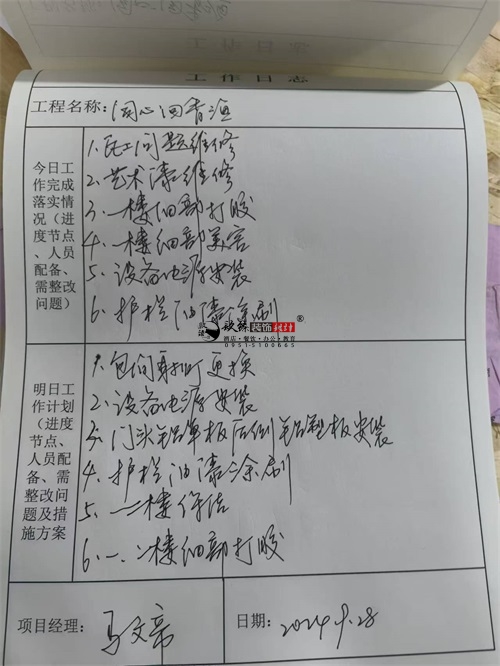 工作日志
工程名称：同心回香道
今日工作完成落实情况（进度节点、人员配备、需整改问题）
1、瓦工问题维修
2、艺术漆维修
3、一楼细部打胶
4、一楼细部美容
5、设备电源安装
6、护栏油漆涂刷
装饰设计®
酒店·餐饮·办公·教育
0951-5100665
明日工作计划（进度节点、人员配备、需整改问题及措施方案
1、包间射灯更换
2、设备电源安装
3、门头铝单板后侧铝塑板安装
4、护栏油漆涂刷
5、一二楼保洁
6、一、二楼细部打胶
项目经理：马文
日期：2024.9.28